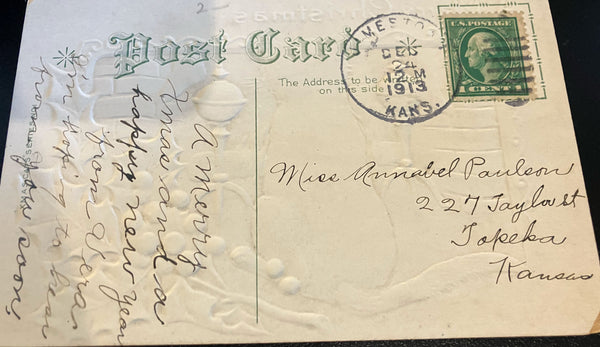 2
Post Card
The Address to be
on this side
A Merry
Xmas and a
happy new year
from Vera.
I'm hoping to hear
from you soon.
JAMESTOWN
DEC
24
12 M
1913
KANS.
U.S. POSTAGE
1 CENT 1
Miss Annabel Paulson
227 Taylor st
Topeka
Kansas